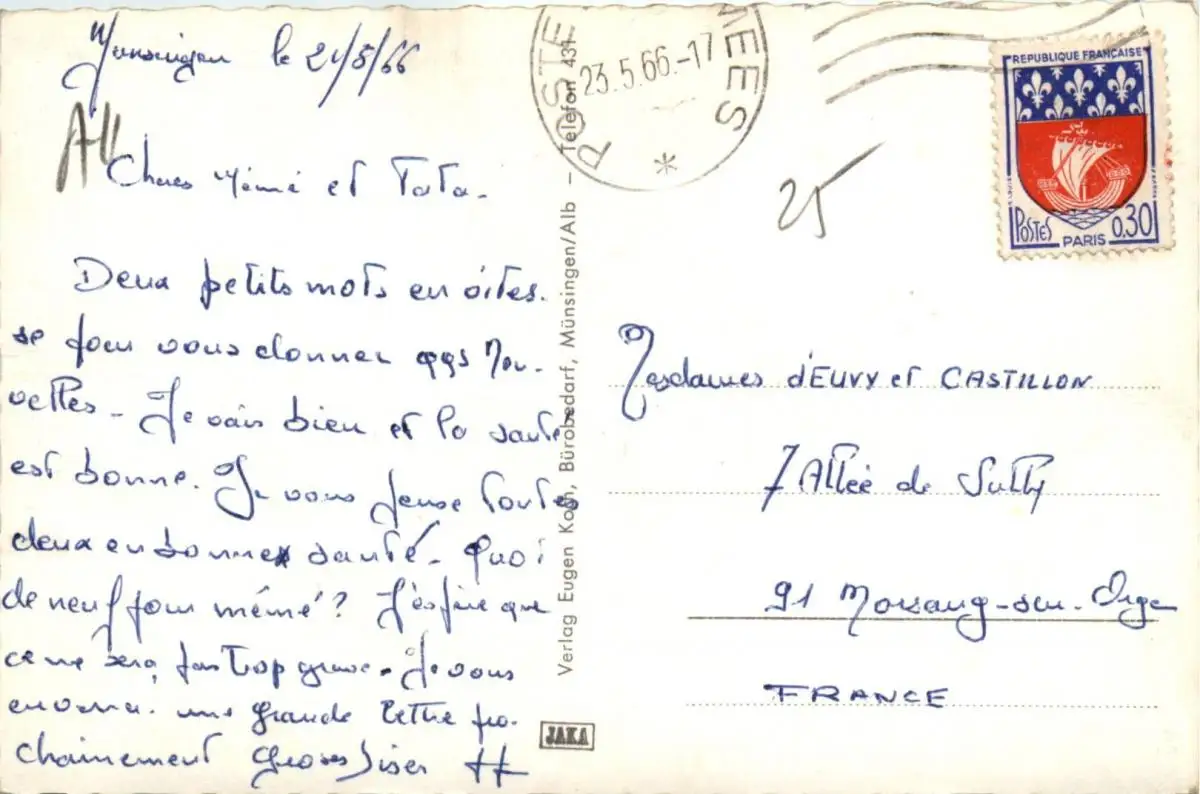 Munsingen le 21/5/66
All
Cheres Mémé et Tata.
Deux petits mots en vites.
se pour vous donner qqs nou-
velles - Je vais bien et la santé
est bonne. Je vous pense toutes
deux en bonne santé. Quoi
de neuf pour mémé? J'espère que
ce ne sera pas trop grave. Je vous
enverrai une grande lettre pro-
chainement Grosses bises
POSTE MEES
23.5.66.-17
*
REPUBLIQUE FRANÇAISE
POSTES PARIS 0,30
25
Mesdames d'EUVY et CASTILLON
7 Allée de Sully
91 Morsang-sur-Orge
FRANCE
Verlag Eugen Koch, Bürobedarf, Münsingen/Alb - Telefon 431
JAKA